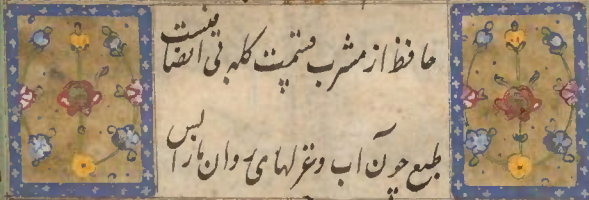 حافظ از مشرب قسمت کله بی انصافیست
طبع چون آب و غزلهای روان ما را بس